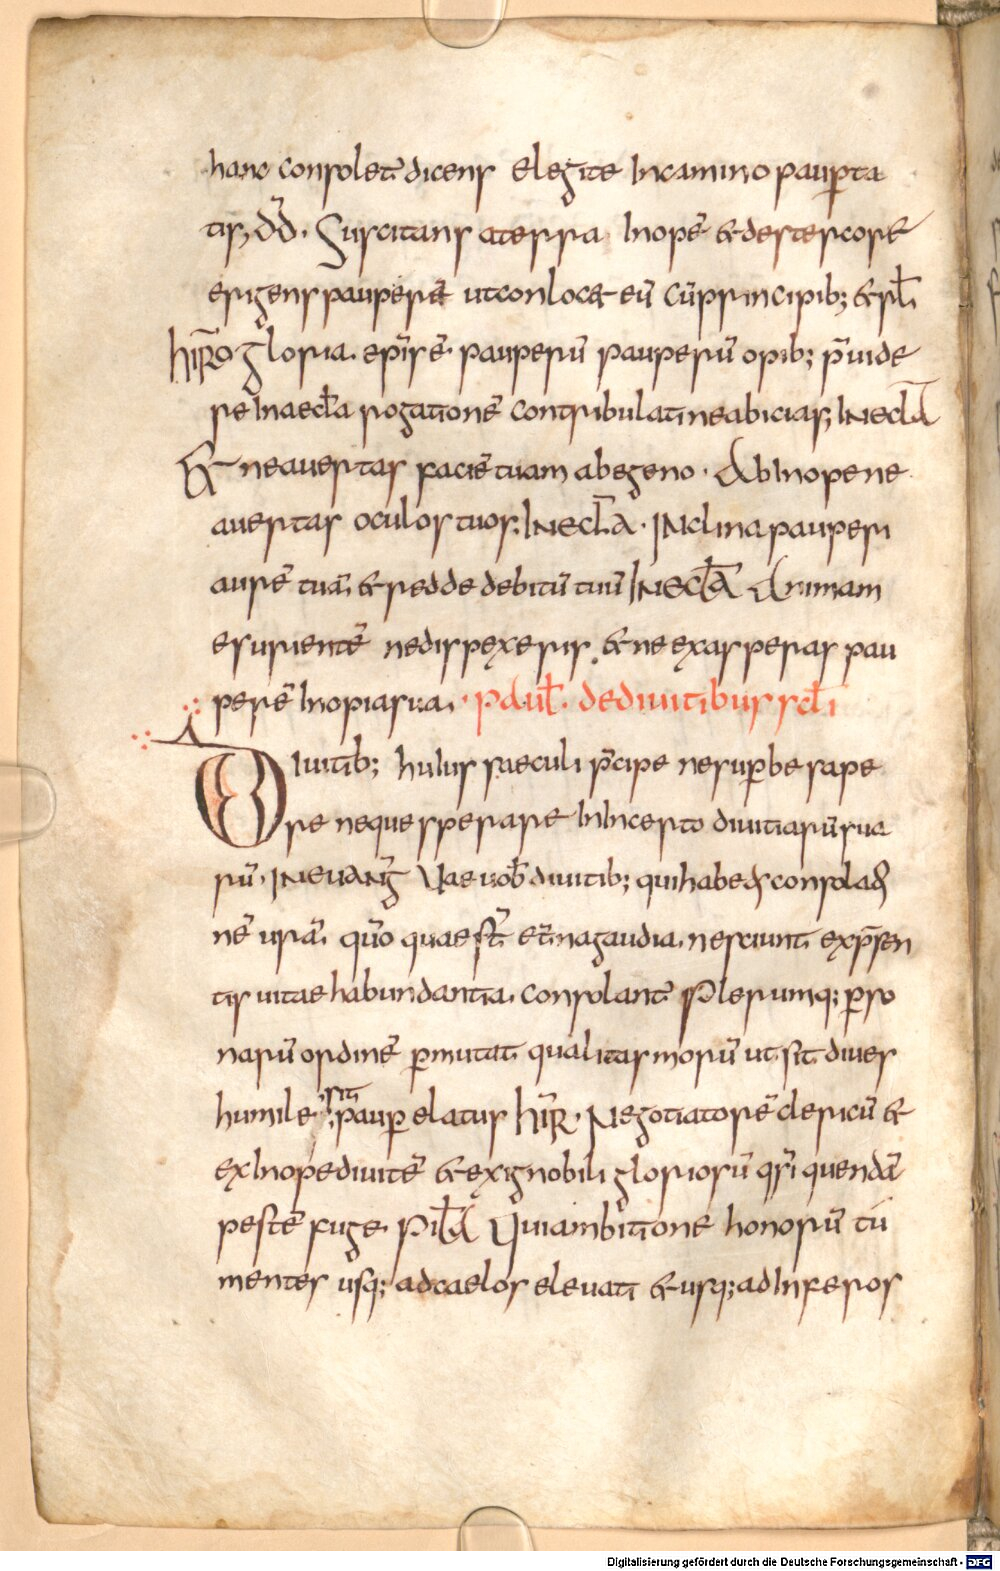 hanc consolet̄ dicens elegite In camino paup̱ta
tis, d̄d̄. Suscitans aterra Inopē & destercorē
erigens pauperē utconloc& eū cūprincipib; & sł
hır̄o gloria. ep̄i rē pauperū pauperū opib; p̄uide
re Inaecł̄a rogationē contribulati neabicias, INecł̄a
& neauertas faciē tuam abegeno. Ab Inope ne
auertas oculos tuos. INecł̄a. INclina pauperi
aurē tuā, & redde debitū tuū INecł̄a Animam
esurientē nedispexeris, & ne exasperas pau
perē Inopia sua. paul̄. dediuitibus scł̄i
Diuitib; huius saeculi p̄cipe nesup̱be sape
re neque sperare In Incerto diuitiarū sua
rū. IN euanḡ Uae uob̄ diuitib; qui habe& consolatio
nē urā̄. qūo quae st̄ et̄na gaudia. nesciunt ex p̄sen
tis uitae habundantia. consolant̄ Plerumq; p̱so
narū ordinē p̱mutat qualitas morū ut sit diues
humile; sit paup̱ elatus hır̄. Negotiatorē clericū &
ex Inope diuitē & exignobili gloriosū q̄si quendā
pestē fuge. Pił̄a Qui ambitione honorū tu
mentes usq; adcaelos eleuati & usq; adInferos
Digitalisierung gefördert durch die Deutsche Forschungsgemeinschaft - DFG